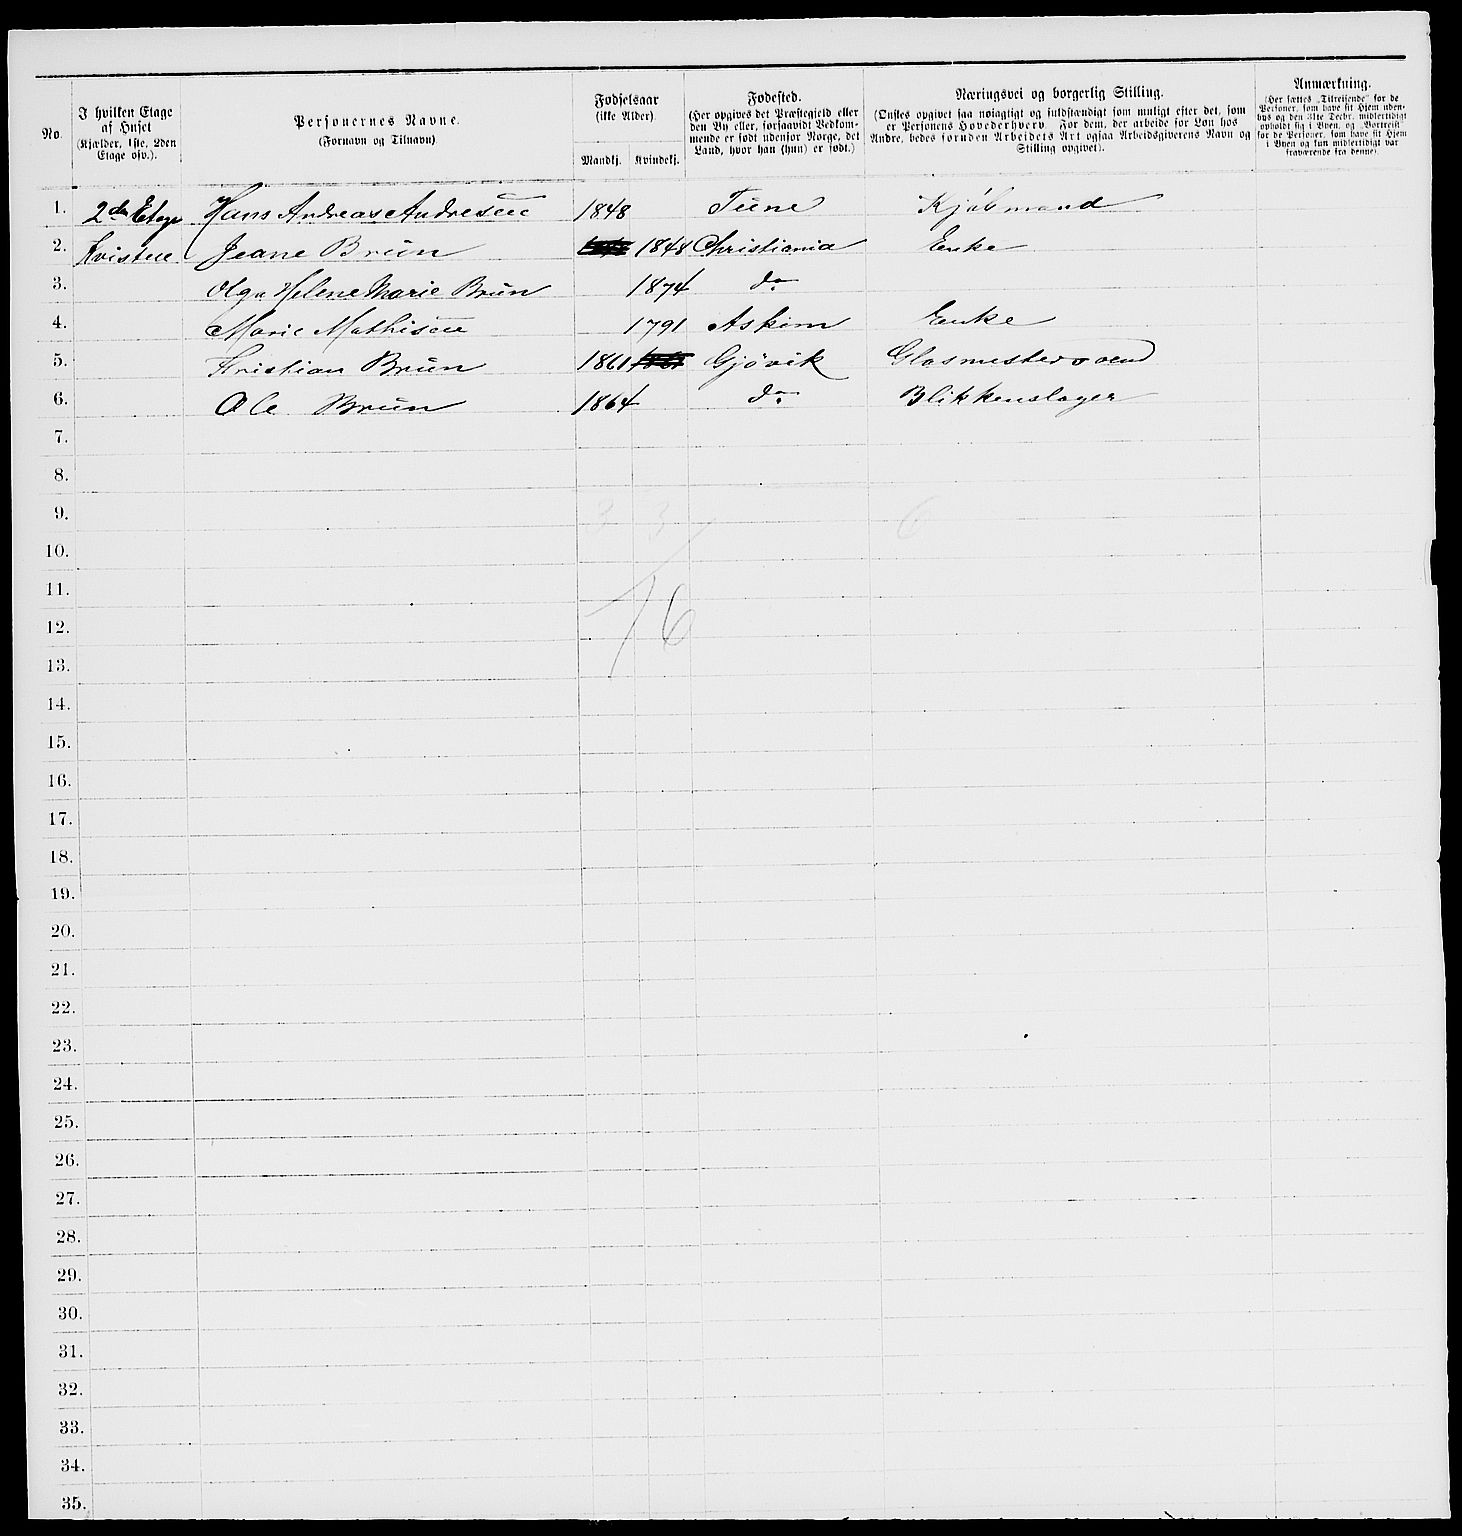 No.
I hvilken Etage
af Huset
(Kjælder, 1ste, 2den
Etage osv.).
Personernes Navne.
(Fornavn og Tilnavn)
Fødselsaar
(ikke Alder).
Mandkj. Kvindekj.
Fødested.
(Her opgives det Præstegjeld eller
den By eller, forsaavidt Vedkom-
mende er født udenfor Norge, det
Land, hvor han (hun) er født.)
Næringsvei og borgerlig Stilling.
(Ønskes opgivet saa nøiagtigt og fuldstændigt som muligt efter det, som
er Personens Hovederhverv. For dem, der arbeide for Løn hos
Andre, bedes foruden Arbeidets Art ogsaa Arbeidsgiverens Navn og
Stilling opgivet).
Anmærkning.
(Her sættes „Tilreisende" for de
Personer, som have sit Hjem uden-
bys og den 31te Decbr. midlertidigt
opholdt sig i Byen, og „Bortreist"
for de Personer, som have sit Hjem
i Byen og kun midlertidigt var
fraværende fra denne).
1. 2den Etage Hans Andreas Andresen 1848 Tune Kjøbmand
2. Kvisten Jeane Brun 1848 Christiania Enke
3. Olga Helene Marie Brun 1874 do
4. Marie Mathisen 1791 Askim Enke
5. Kristian Brun 1861 Gjøvik Glasmestersvend
6. Ole Brun 1864 do Blikkenslager
7.
8.
9. 3 3 6
10.
11.
12. 6
13.
14.
15.
16.
17.
18.
19.
20.
21.
22.
23.
24.
25.
26.
27.
28.
29.
30.
31.
32.
33.
34.
35.